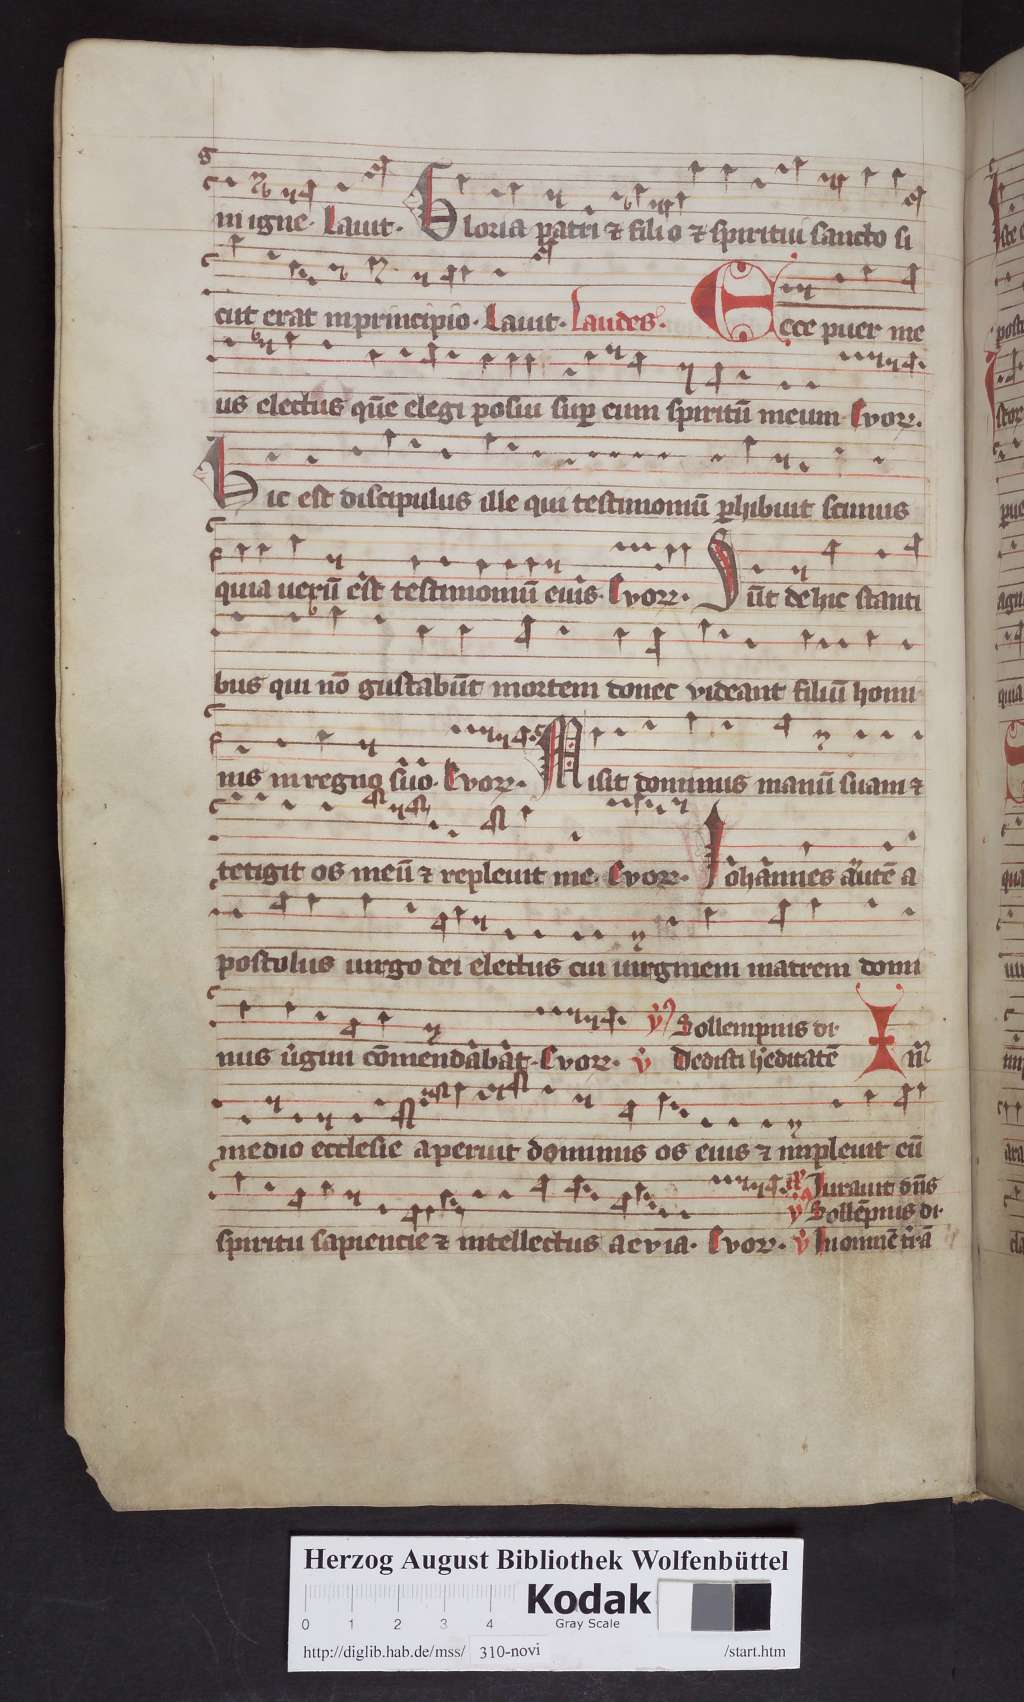 in igne. Lauit. Gloria patri ⁊ filio ⁊ spiritui sancto si
cut erat in principio. Lauit. Laudes. Ecce puer me
us electus quē elegi posui sup eum spiritū meum Euouae.
Hic est discipulus ille qui testimoniū phibuit scimus
quia uerū est testimoniū eius. Euouae. Sūt de hic stanti
bus qui nō gustabūt mortem donec videant filiū homi
nis in regno suo. Euouae. Misit dominus manū suam ⁊
tetigit os meū ⁊ repleuit me. Euouae. Johannes autē a
postolus uirgo dei electus cui uirginem matrem domi
Sollempnis di.
nus ūgini cōmendabat. Euouae. Dedisti heditatē In
medio ecclesie aperuit dominus os eius ⁊ impleuit eū
Jurauit dn̄s
Sollēpnis di.
spiritu sapiencie ⁊ intellectus aevia. Euouae. In omnē trā
Herzog August Bibliothek Wolfenbüttel
0 1 2 3 4 Kodak
Gray Scale
http://diglib.hab.de/mss/ 310-novi /start.htm